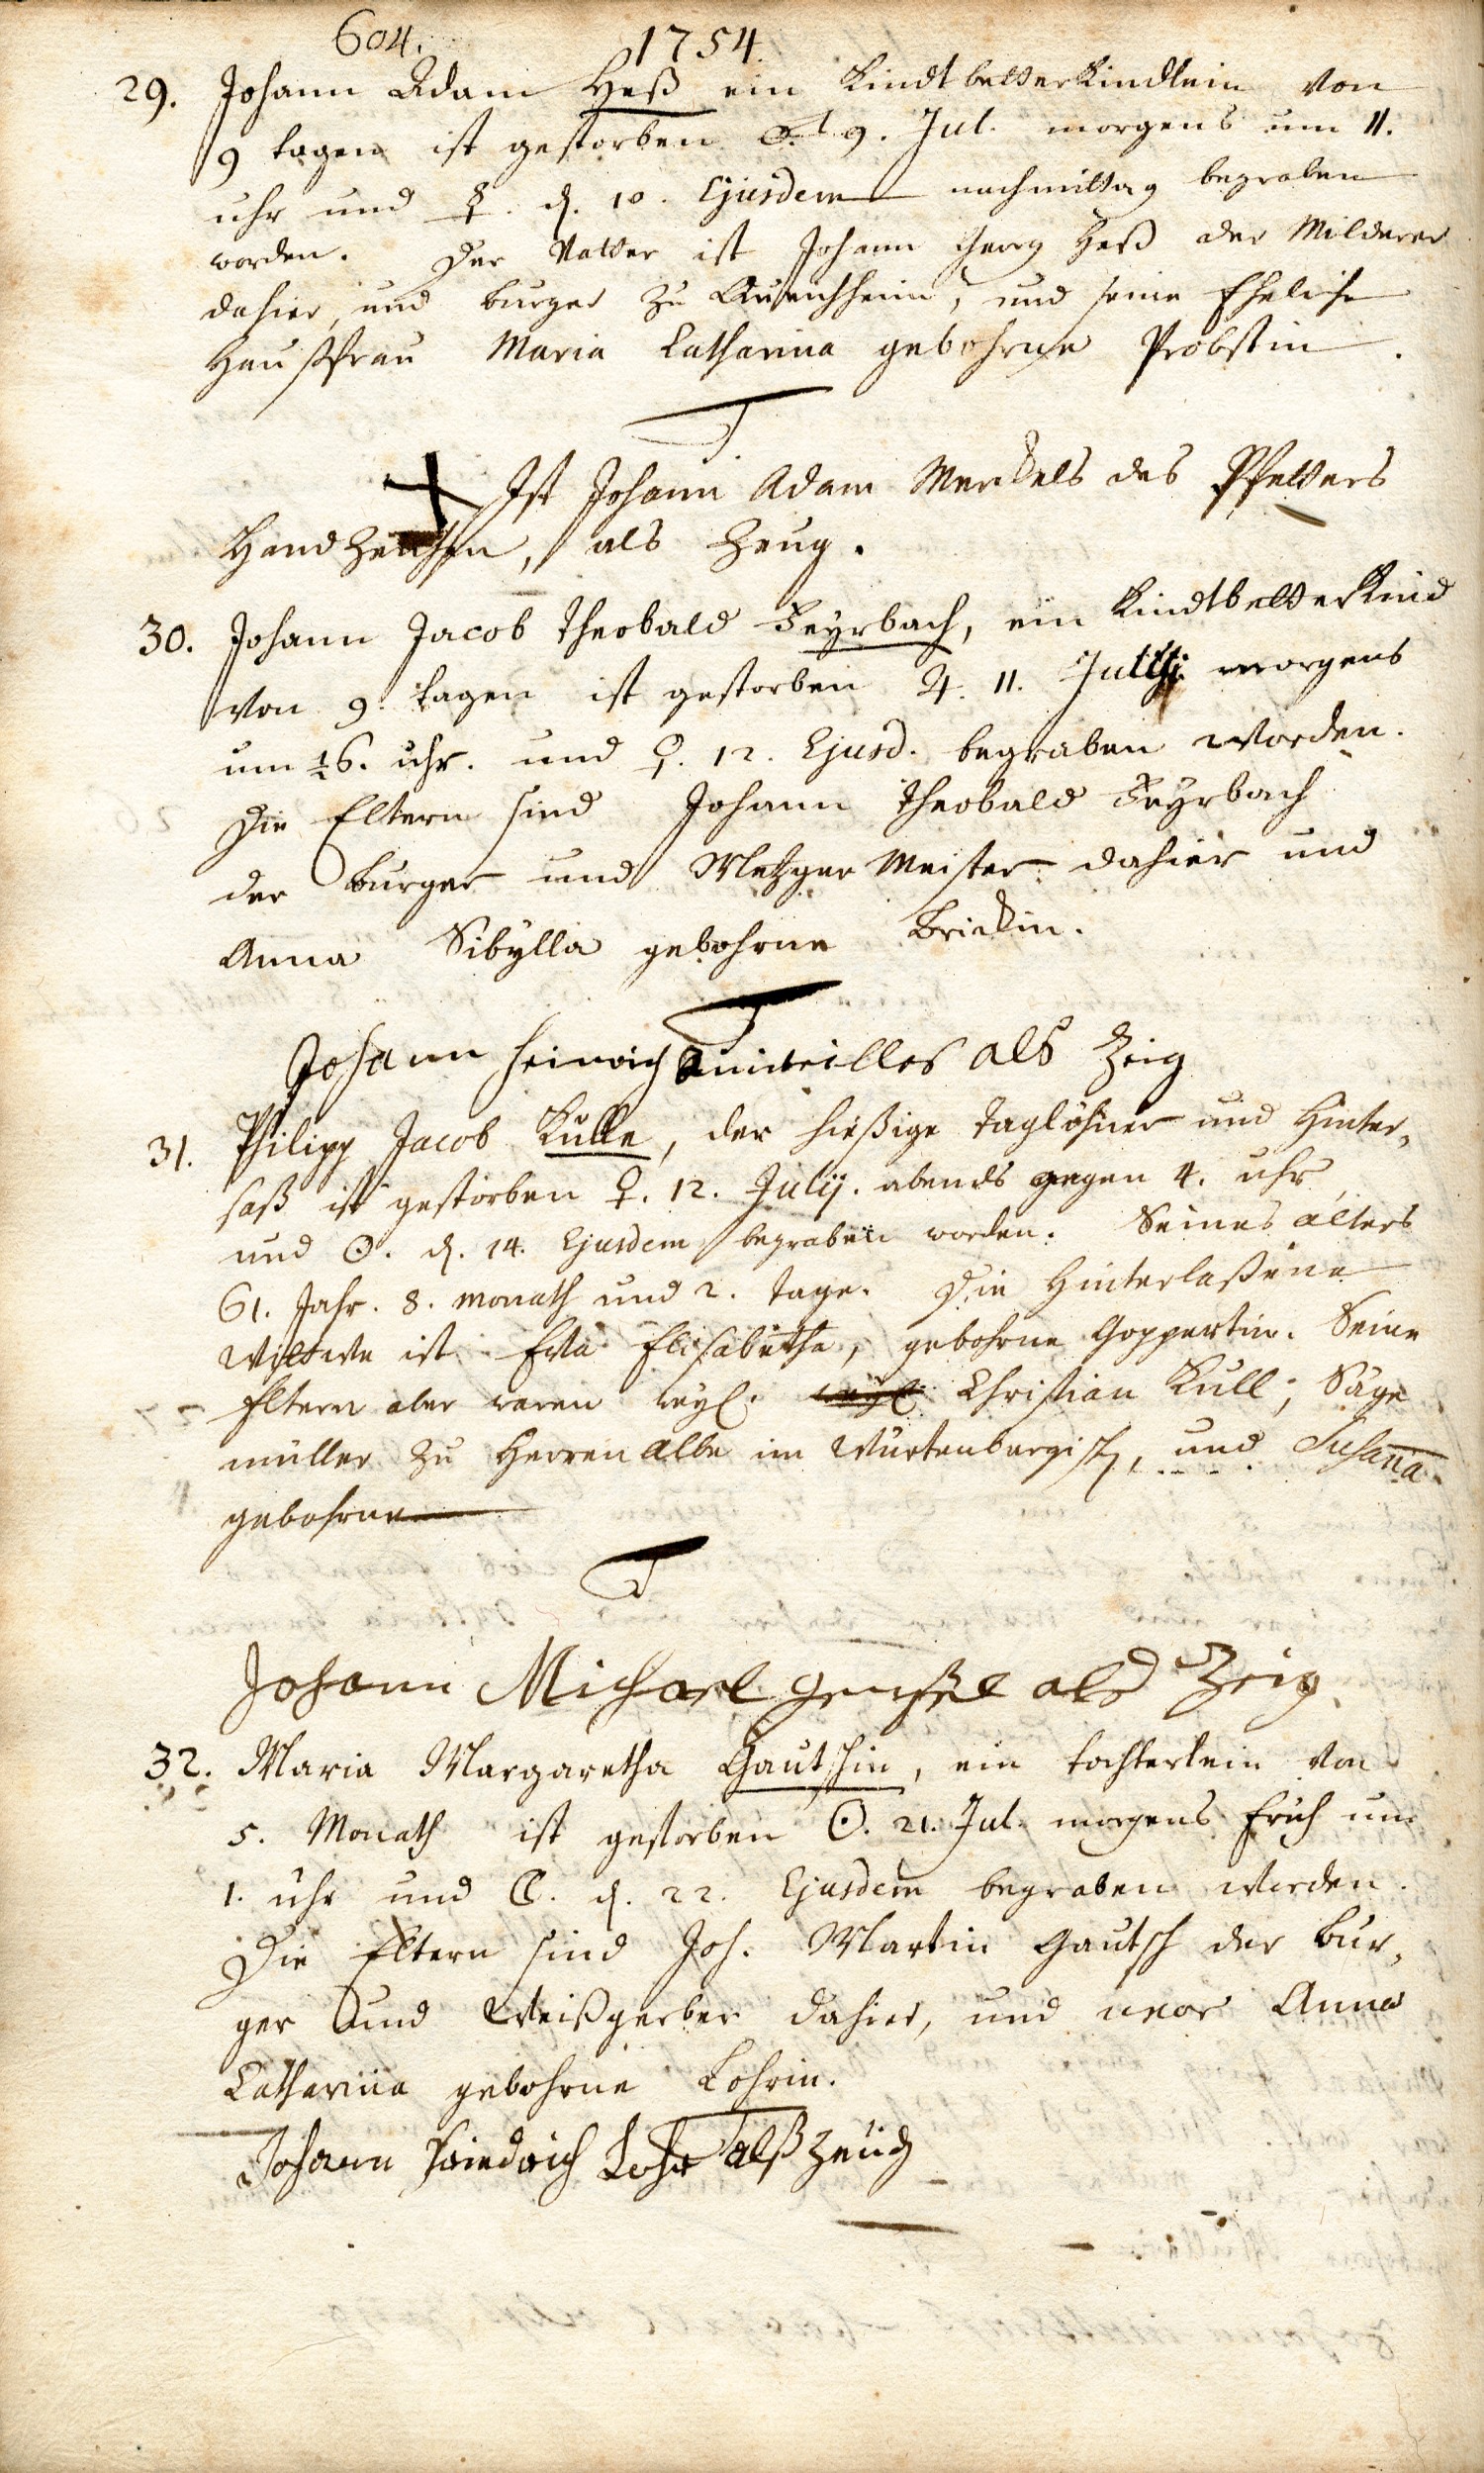 604.
1754.
29. Johann Adam Heß ein Kindtbetterkindlein von
9 tagen ist gestorben ♂ 9. Jul. morgens um 11.
uhr und ☿. d. 10. Ejusdem nachmittag begraben
worden. Der Vatter ist Johann Georg Heß der
dahier, und burger zu Queichheim, und seine Eheliche
Haußfrau Maria Catharina gebohrne Probstin.
+ Ist Johann Adam Merckels des Pfetters
Handzeichen, als Zeug.
30. Johann Jacob Theobald Feyrbach, ein Kindtbetterkind
von 9. tagen ist gestorben ♃. 11. Julij morgens
um ½6. uhr. und ♀. 12. Ejusd. begraben worden.
Die Eltern sind Johann Theobald Feyrbach
der burger und Metzger Meister dahier und
Anna Sibylla gebohrne Brickin.
Johann Heinrich als Zeig
31. Philipp Jacob Kulle, der hießige taglöhner und Hinter,
saß ist gestorben ♀. 12. Julij. abends gegen 4. uhr
und ☉. d. 14. Ejusdem begraben worden. Seines alters
61. Jahr. 8. monath und 2. tage. Die Hinterlaßene
Wittwe ist Eva Elisabetha, gebohrne Goppertin. Seine
Eltern aber waren weyl. weyl. Christian Kull, Säge
müller zu Herrenalbe im Würtenbergisch, und Susana
gebohrne
Johann Michael als Zeig
32. Maria Margaretha Gautschin, ein tochterlein von
5. Monath ist gestorben ☉. 21. Jul. morgens früh um
1. uhr und ☾. d. 22. Ejusdem begraben worden.
Die Eltern sind Joh. Martin Gautsch der bur,
ger und Weißgerber dahier, und uxor Anna
Catharina gebohrne Lohrin.
Johann Friedrich Lohr alß Zeüch